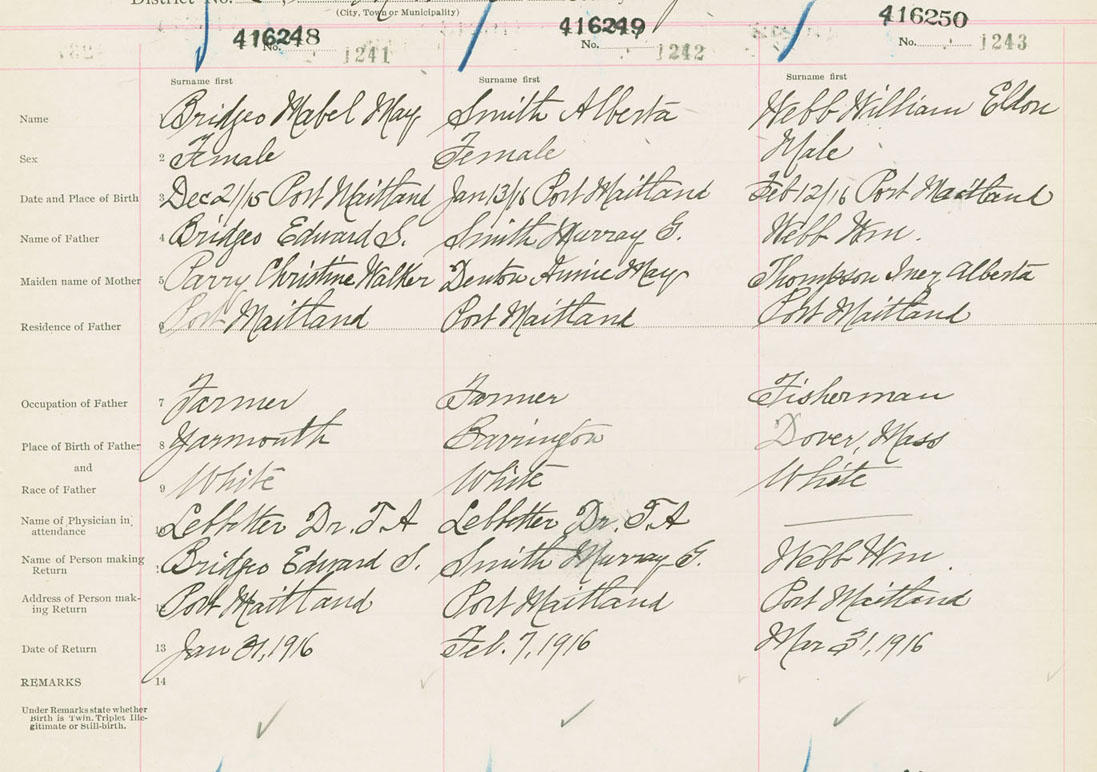 District No.
(City, Town or Municipality)
416248 416249 416250
No. 1241 No. 1242 No. 1243
Surname first Surname first Surname first
Name Bridgeo Mabel May Smith Alberta Webb William Eldon
Sex 2 Female Female Male
Date and Place of Birth 3 Dec 21/15 Port Maitland Jan 13/16 Port Maitland Feb 12/16 Port Maitland
Name of Father 4 Bridgeo Edward S. Smith Murray G. Webb Wm.
Maiden name of Mother 5 Parry Christine Walker Denton Annie May Thompson Inez Alberta
Residence of Father 6 Port Maitland Port Maitland Port Maitland
Occupation of Father 7 Farmer Farmer Fisherman
Place of Birth of Father 8 Yarmouth Barrington Dover, Mass
and
Race of Father 9 White White White
Name of Physician in attendance 10 Lebbetter Dr. T. A Lebbetter Dr. T. A
Name of Person making Return Bridgeo Edward S. Smith Murray G. Webb Wm.
Address of Person mak-
ing Return 12 Port Maitland Port Maitland Port Maitland
Date of Return 13 Jan 31, 1916 Feb. 7, 1916 Mar 31, 1916
REMARKS 14
Under Remarks state whether
Birth is Twin, Triplet Ille-
gitimate or Still-birth.